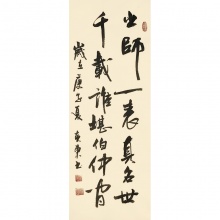 出師一表真名世
千載誰堪伯仲間
歲在庚子夏